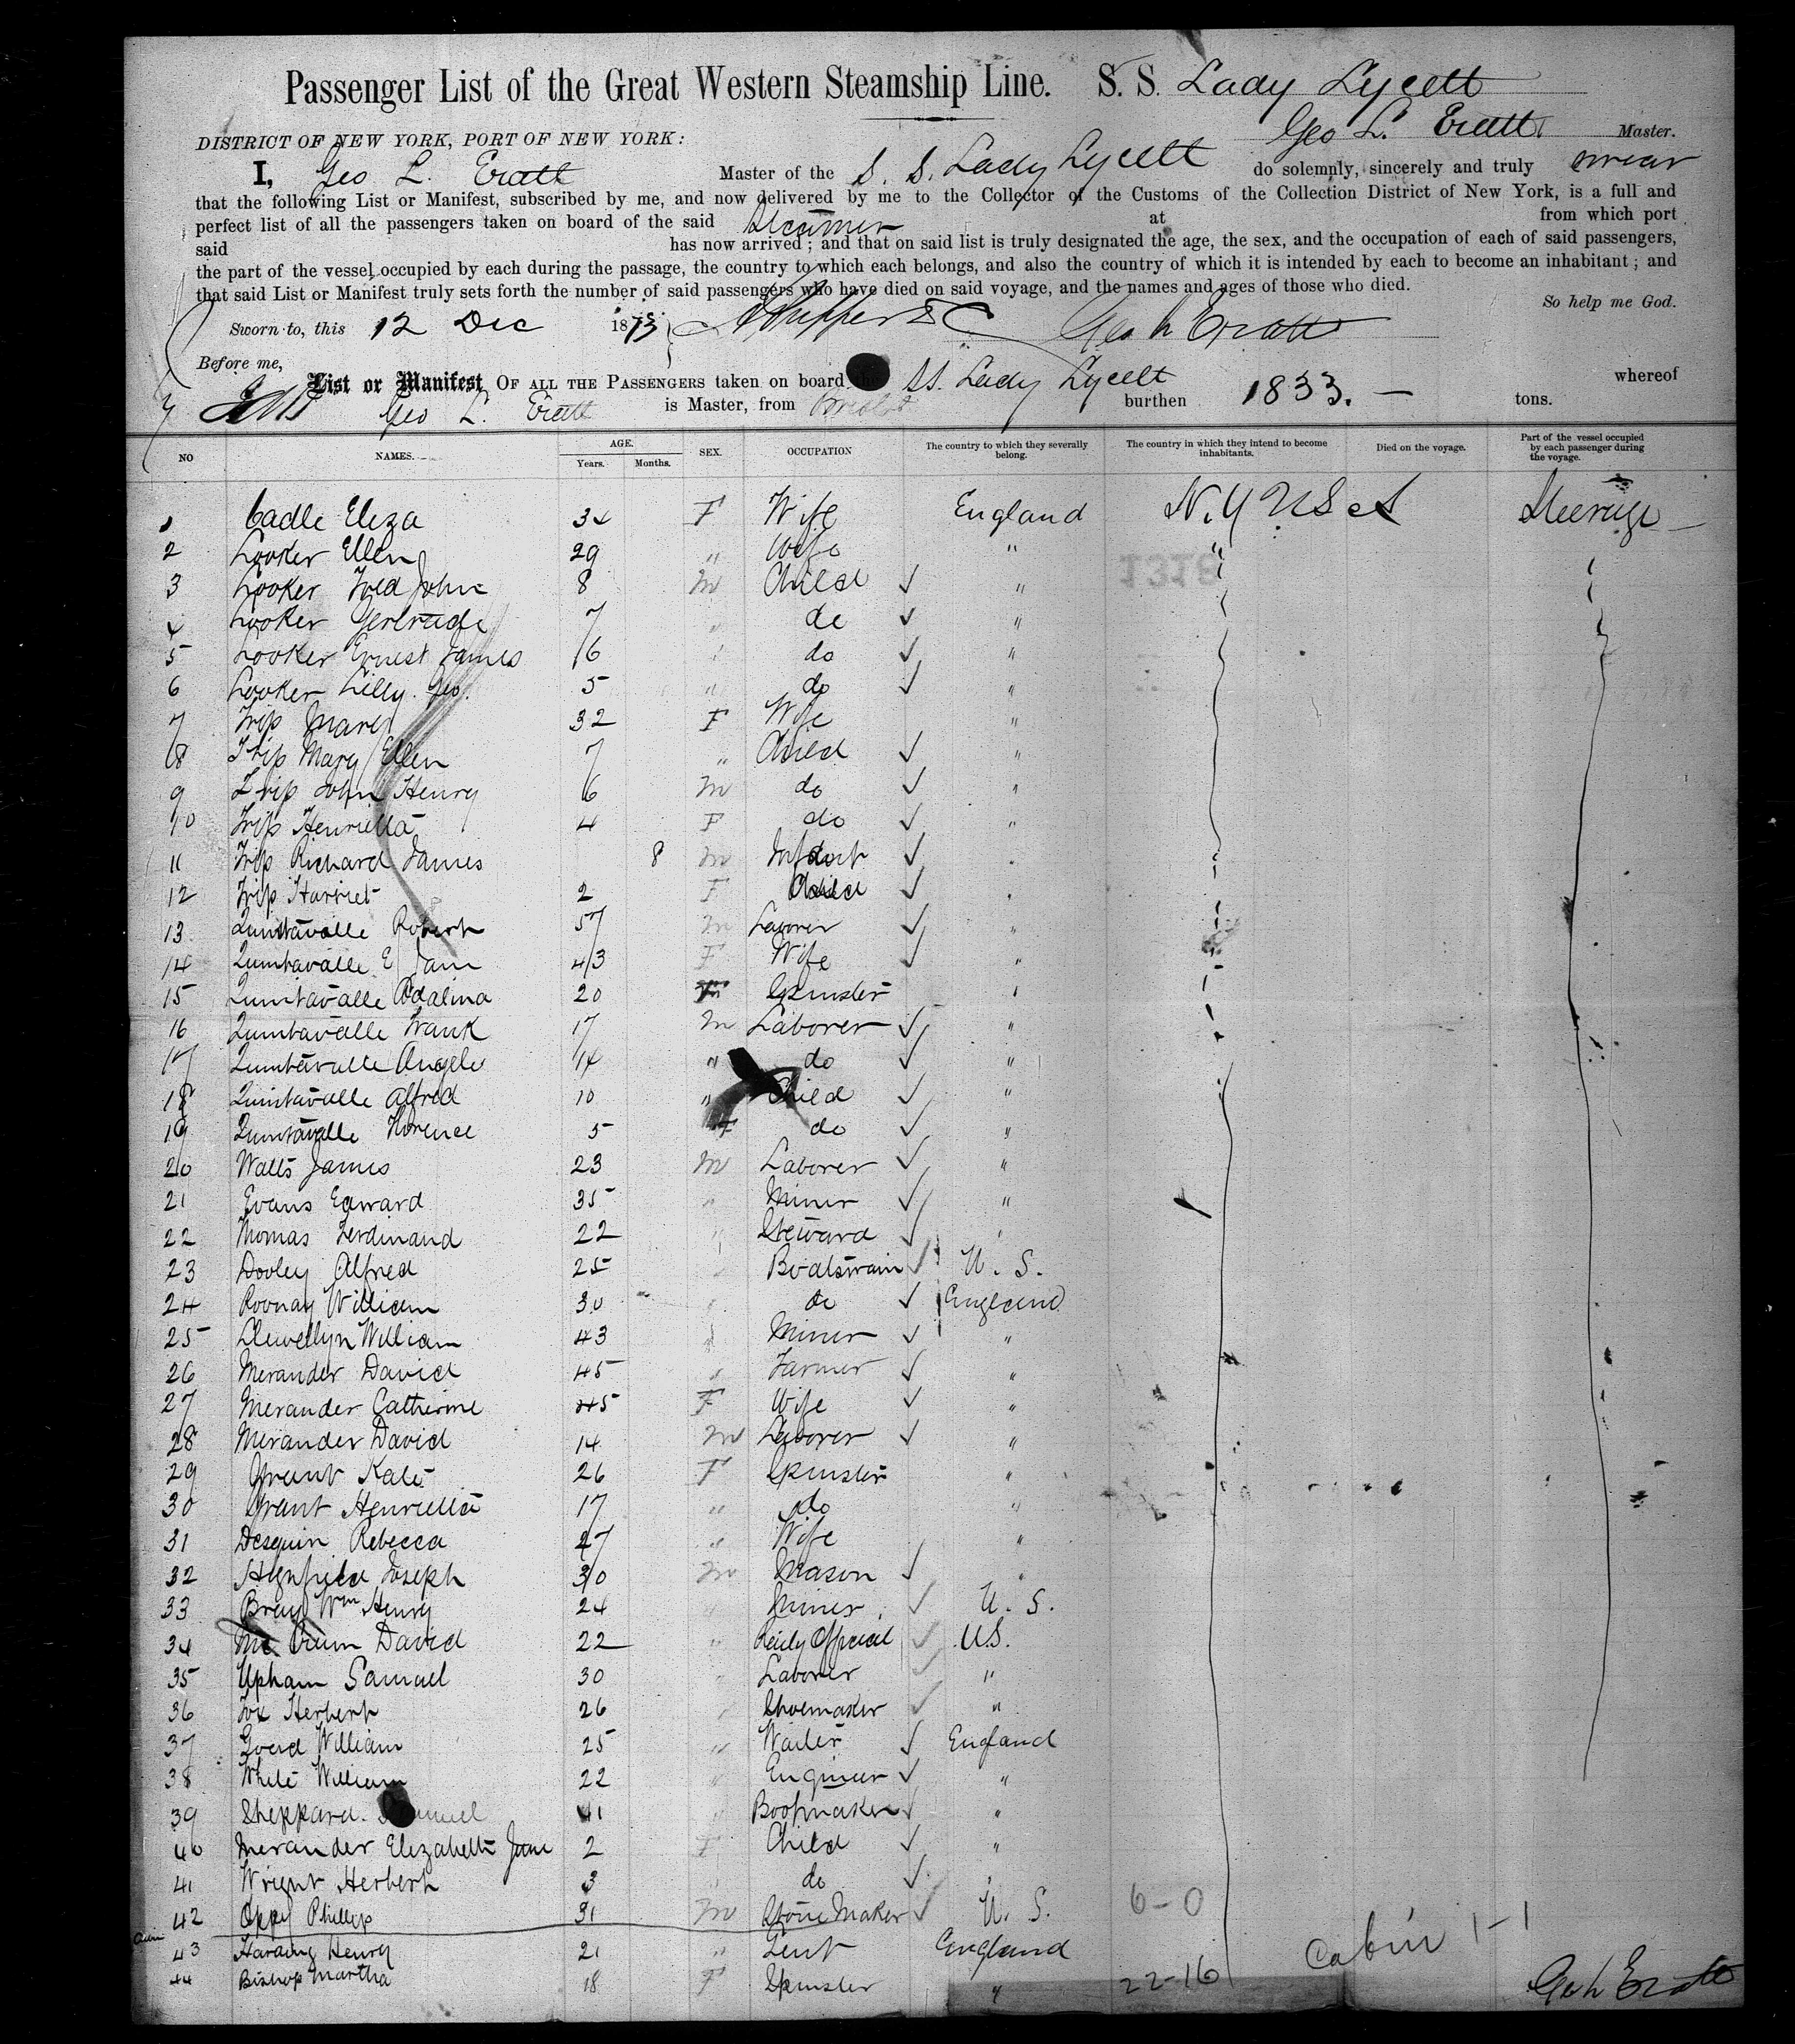 Passenger List of the Great Western Steamship Line. S. S. Lady Lycett
Geo L. Eratt. Master.
DISTRICT OF NEW YORK, PORT OF NEW YORK:
I, Geo L. Eratt Master of the S. S. Lady Lycett do solemnly, sincerely and truly swear
that the following List or Manifest, subscribed by me, and now delivered by me to the Collector of the Customs of the Collection District of New York, is a full and
perfect list of all the passengers taken on board of the said Steamer at from which port
said has now arrived; and that on said list is truly designated the age, the sex, and the occupation of each of said passengers,
the part of the vessel occupied by each during the passage, the country to which each belongs, and also the country of which it is intended by each to become an inhabitant; and
that said List or Manifest truly sets forth the number of said passengers who have died on said voyage, and the names and ages of those who died.
So help me God.
Sworn to, this 12 Dec 1873
Before me,
List or Manifest OF ALL THE PASSENGERS taken on board the SS. Lady Lycett whereof
Geo L. Eratt is Master, from Bristol burthen 1833. — tons.
NO NAMES. AGE. Years. Months. SEX. OCCUPATION The country to which they severally belong. The country in which they intend to become inhabitants. Died on the voyage. Part of the vessel occupied by each passenger during the voyage.
1 Cadle Eliza 34 F Wife England N.Y USA Steerage
2 Looker Ellen 29 " Wife " "
3 Looker Fred John 8 M Child "
4 Looker Gertrude 7 " do "
5 Looker Ernest James 6 " do "
6 Looker Lilly Geo. 5 " do "
7 Trip Mary 32 F Wife "
8 Trip Mary Ellen 7 " Child "
9 Trip John Henry 6 M do "
10 Trip Henrietta 4 F do "
11 Trip Richard James 8 M Infant "
12 Trip Harriet 2 F Child "
13 Quintavalle Robert 57 M Laborer "
14 Quintavalle E Jane 43 F Wife "
15 Quintavalle Adalina 20 F Spinster "
16 Quintavalle Frank 17 M Laborer "
17 Quintavalle Angelo 14 " do "
18 Quintavalle Alfred 10 " Child "
19 Quintavalle Florence 5 F do "
20 Watts James 23 M Laborer "
21 Evans Edward 35 " Miner "
22 Thomas Ferdinand 22 " Steward "
23 Dooley Alfred 25 " Boatswain U. S.
24 Roonay William 30 " do England
25 Llewellyn William 43 " Miner "
26 Merander David 45 " Farmer "
27 Merander Catherine 45 F Wife "
28 Merander David 14 M Laborer "
29 Grant Kate 26 F Spinster "
30 Grant Henrietta 17 " do "
31 Desquin Rebecca 27 " Wife "
32 Highfield Joseph 30 M Mason "
33 Bray Wm Henry 24 " Miner U. S.
34 David 22 " Official U.S.
35 Upham Samuel 30 " Laborer "
36 Fox Herbert 26 " Shoemaker "
37 William 25 " Waiter England
38 White William 22 " Engineer "
39 Sheppard Samuel 41 " Bootmaker "
40 Merander Elizabeth Jane 2 F Child "
41 Wright Herbert 3 " do "
42 Oppy Phillip 31 M Stone Maker U. S. 6-0
43 Harding Henry 21 " Gent England Cabin 1-1
44 Bishop Martha 18 F Spinster " 22-16
Geo L Eratt